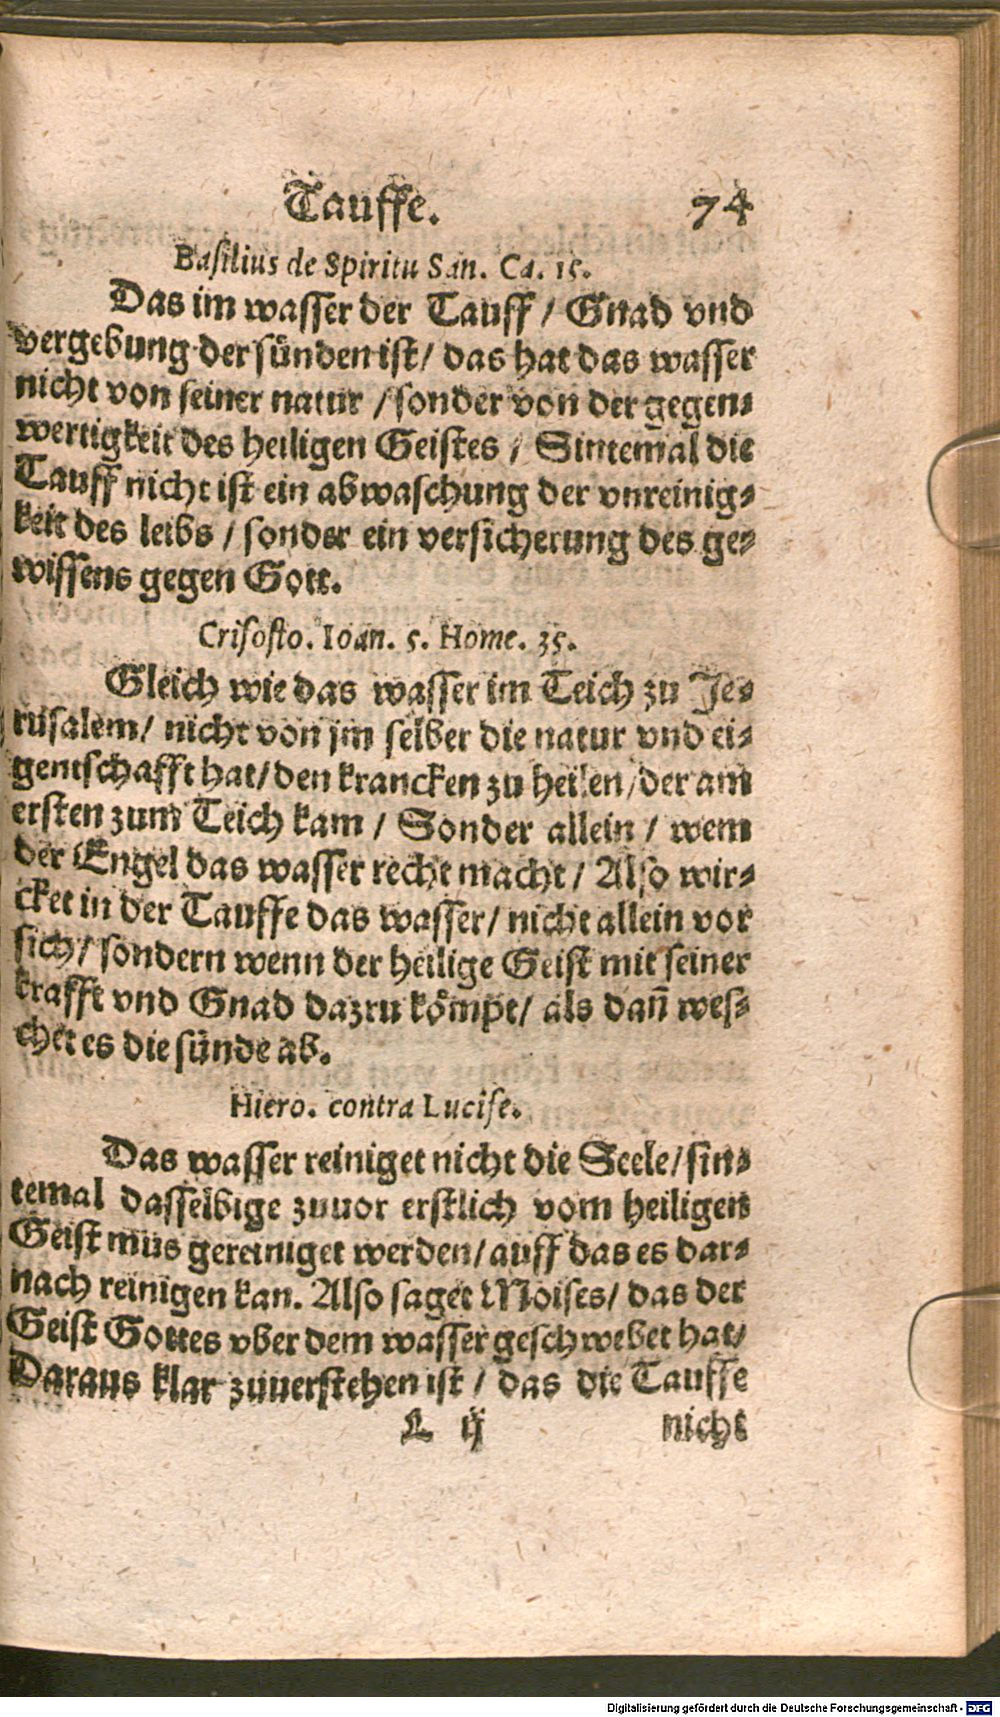 Tauffe. 74
Basilius de Spiritu San. Ca. 15.
Das im wasser der Tauff / Gnad vnd
vergebung der sünden ist / das hat das wasser
nicht von seiner natur / sonder von der gegen-
wertigkeit des heiligen Geistes / Sintemal die
Tauff nicht ist ein abwaschung der vnreinig-
keit des leibs / sonder ein versicherung des ge-
wissens gegen Gott.
Crisosto. Ioan. 5. Home. 35.
Gleich wie das wasser im Teich zu Je-
rusalem / nicht von jm selber die natur vnd ei-
gentschafft hat / den krancken zu heilen / der am
ersten zum Teich kam / Sonder allein / wem
der Engel das wasser recht macht / Also wir-
cket in der Tauffe das wasser / nicht allein vor
sich / sondern wenn der heilige Geist mit seiner
krafft vnd Gnad dazru kömpt / als dañ wes-
chet es die sünde ab.
Hiero. contra Lucife.
Das wasser reiniget nicht die Seele / sin-
temal dasselbige zuuor erstlich vom heiligen
Geist mus gereiniget werden / auff das es dar-
nach reinigen kan. Also saget Moises / das der
Geist Gottes vber dem wasser geschwebet hat /
Daraus klar zuuerstehen ist / das die Tauffe
L ij nicht
Digitalisierung gefördert durch die Deutsche Forschungsgemeinschaft - DFG